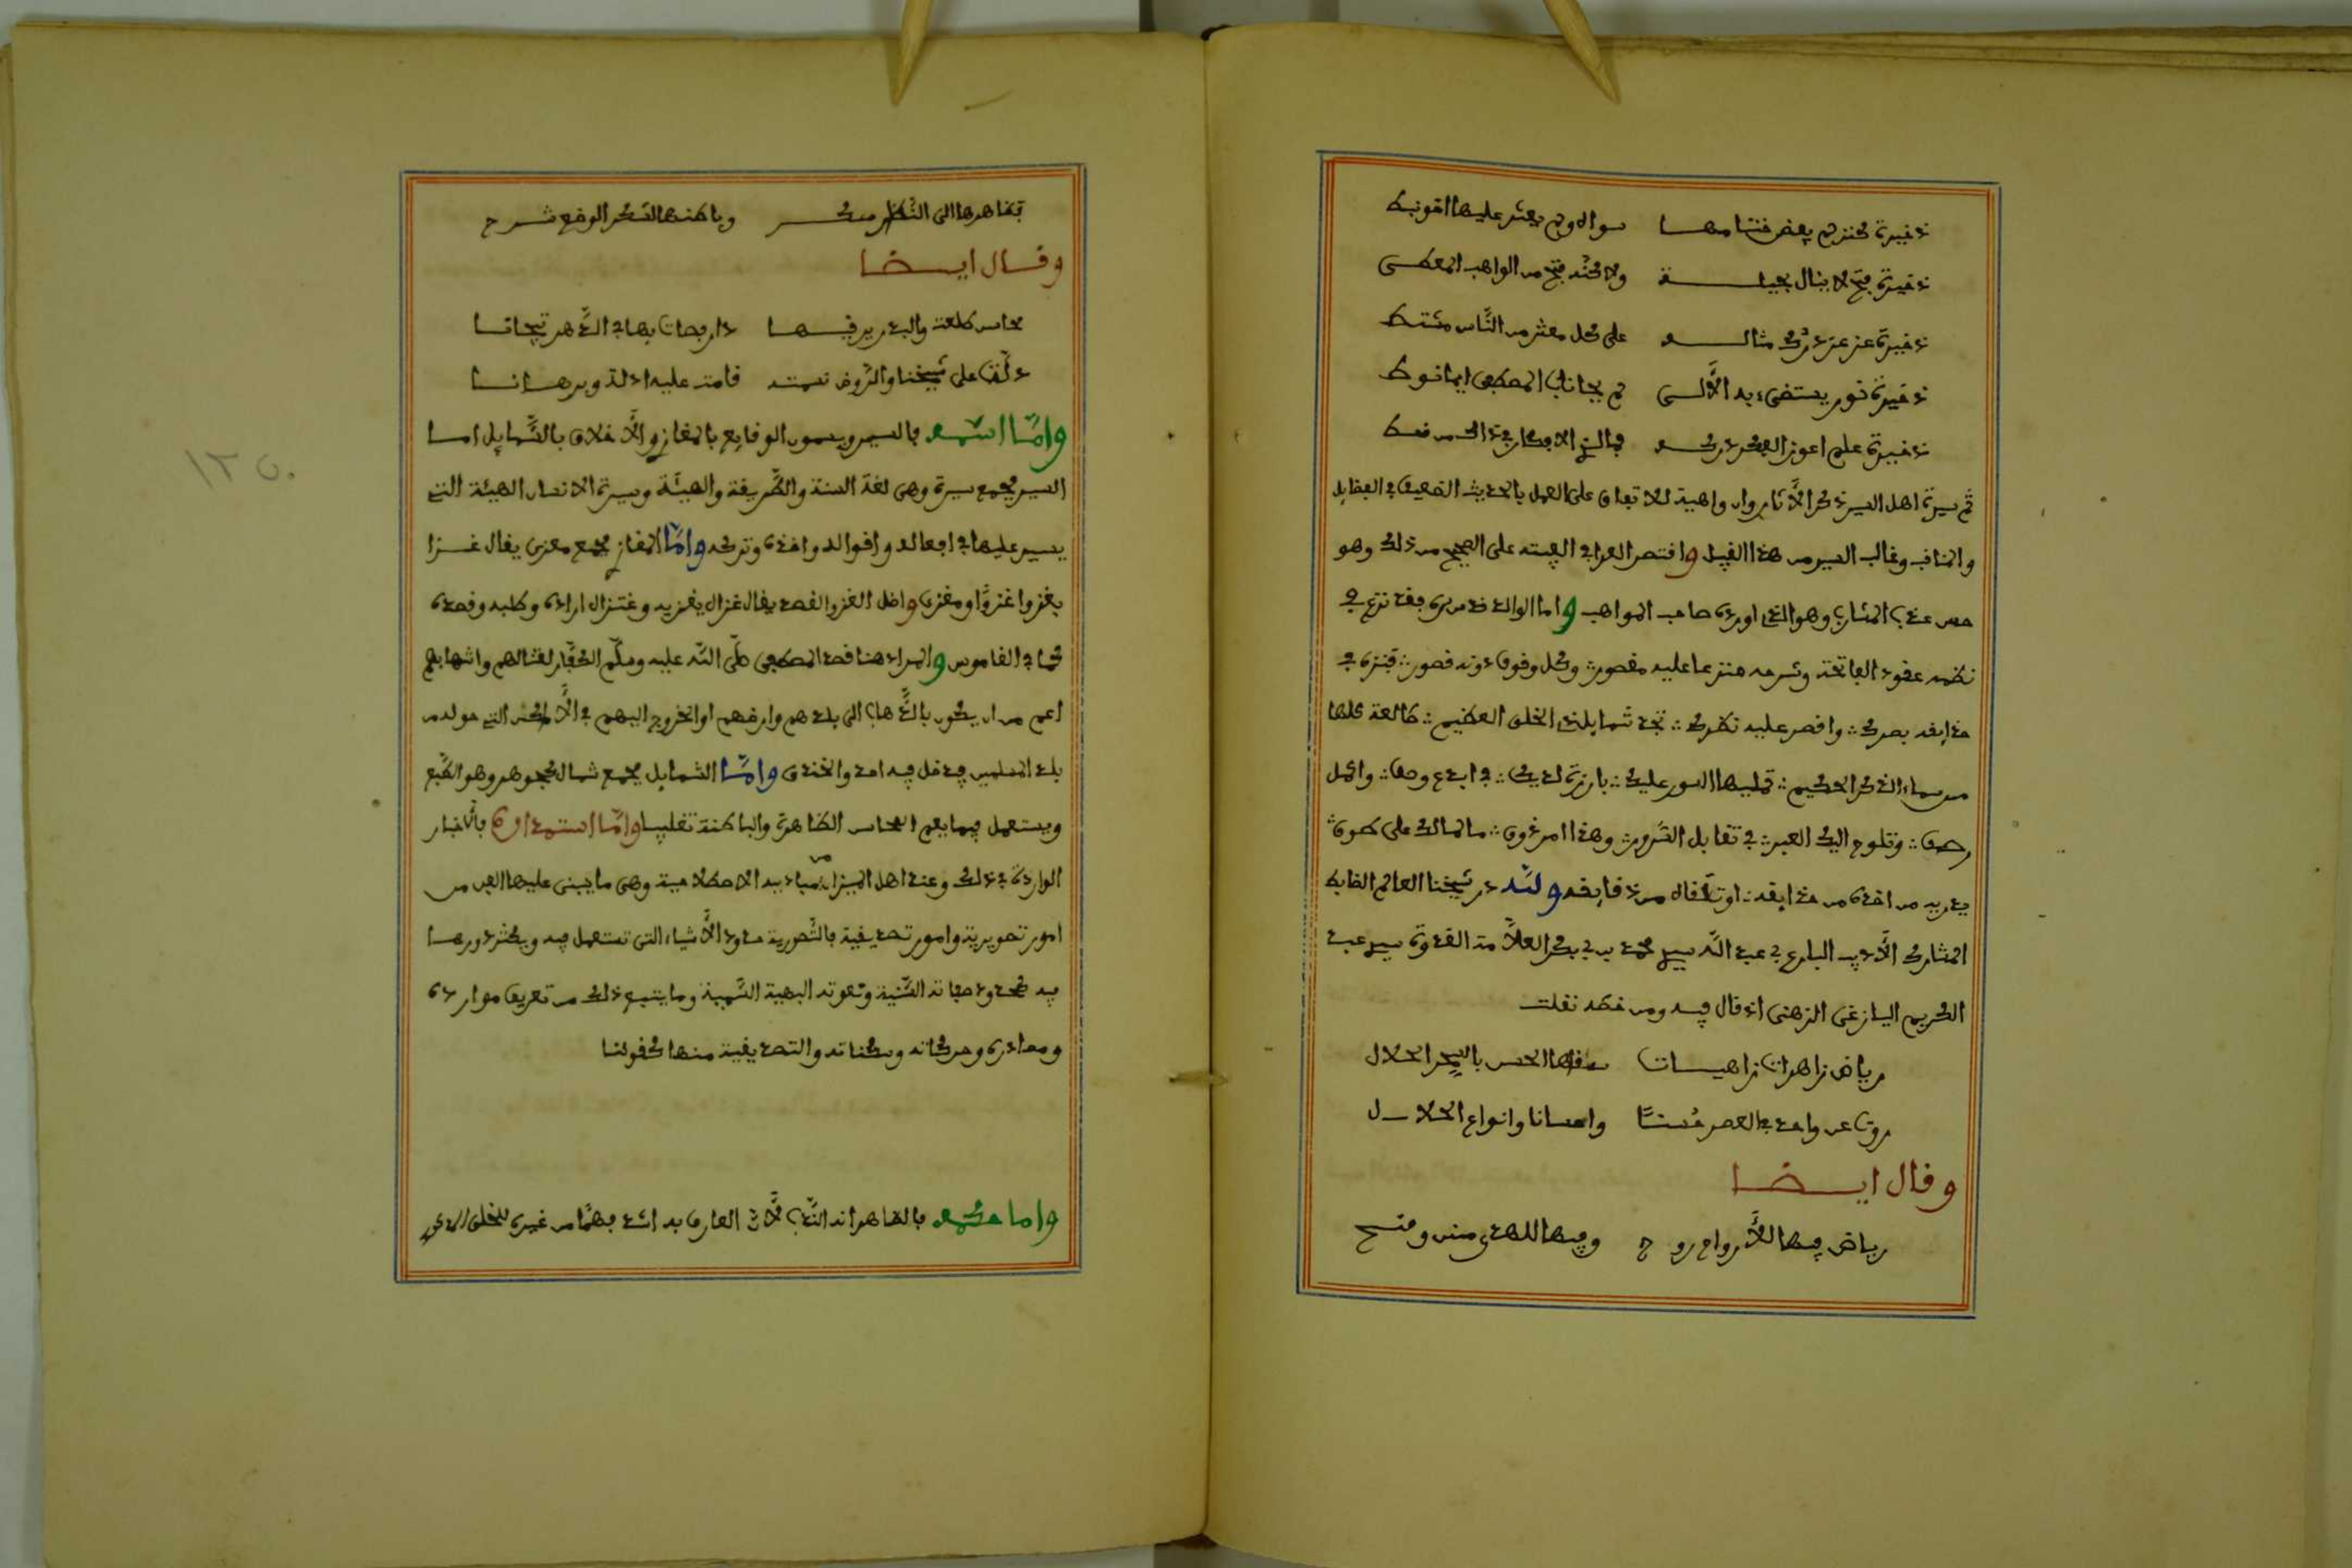 ذخيرة كنز لم يفض ختامها سواه ولم يعثر عليها
ذخيرة فتح لا ينال بحيلة ولاكنه فتح من الواهب المعطي
ذخيرة عز عز درك مثاله على كل معثر من الناس مشتط
ذخيرة نور يستضيء به الألى
ذخيرة علم اعوز الفكر دركه
ثم سيرة اهل السير ذكر الآثار وان واهية للاتفاق على العمل بالحديث الضعيف في الفضايل
والمناقب وغالب السير من هذا القبيل واقتصر العراقي في الفيته على الصحيح من ذلك وهو
حسن عذب المشارب وهو الذي اورده صاحب المواهب واما الوالد قدس سره فقد نزع في
نظمه عقود الفاتحة وشرحه منزعا عليه مقصور وكل وقوف دونه قصور فنزه في
حدايقه بصرك واقصر عليه نظرك تجد شمايل ذي الخلق العظيم طالعة كلها
من سماء الذكر الحكيم تمليها السور عليك بارزة لديك في ابدع وصف واكمل
رصف وتلوح اليك العبر في تقابل الدرر وهذا امر غرف مالمالك على طوق
يد من اخذه من حدايقه او تلقاه من ذقايقه ولله در شيخنا العالم الضابط
المشارك الأديب البارع ابي عبد الله سيدي محمد بن ابي بكر العلامة القدوة سيدي عبد
الكريم اليازغي الزهني اذ قال فيه ومن خطه نقلت
رياض زاهرات زاهيات سقاها الحسن بالسحر الحلال
روت عن واحد في العصر حسنا واحسانا وانواع الخلال
وقال ايضا
رياض فيها للأرواح روح وفيها للهدى متن وشرح
بظاهرها الى النظر سكر وباطنها لسكر الوقع شرح
وقال ايضا
محاسن طلعت والبدر يرقبها دار بعات بها في الدهر تيجانا
دلت على شيخنا والروض نعمته قامت عليه ادلة وبرهانا
واما اسمه فالسير ويسمون الوقايع بالمغازي والأخلاق بالشمايل اما
السير فجمع سيرة وهي لغة السنة والطريقة والهيئة وسيرة الانسان الهيئة التي
يسير عليها في افعاله واقواله واخذه وتركه واما المغازي فجمع مغزى يقال غزا
يغزوا غزوا ومغزى واصل الغزو القصد يقال غزاه يغزيه وغتزاه اراده وطلبه وقصده
كما في القاموس والمراد هنا قصد المصطفى صلى الله عليه وسلم الكفار لقتالهم واشباههم
اعم من ان يكون بالذهاب الى بلدهم وارضهم او الخروج اليهم في الأماكن التي حول من
بلد المسلمين فيدخل فيه احد والخندق واما الشمايل فجمع شمال كجوهر وهو الطبع
ويستعمل فيما يعم المحاسن الظاهرة والباطنة تغليبا واما استمداده فبالأخبار
الواردة في ذلك وعند اهل الميزان من مباديه الاصطلاحية وهي ما يبنى عليها الفن من
امور تصورية وامور تصديقية فالتصورية حدود الأشياء التي تستعمل فيه ويكثر دورها
فيه كحدود صفاته السنية ونعوته البهية السمية وما يتبع ذلك من تعريف موارده
ومصادره وحركاته وسكناته والتصديقية منها كقولنا
واما حكمه فالظاهر انه الندب لأن العارف به اشد فهما من غيره للخلق
١٢٥٠